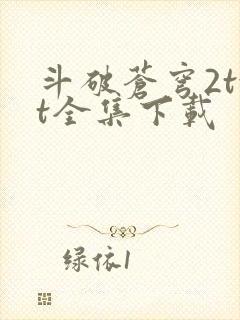 斗破蒼穹2t
t全集下載
绿依1